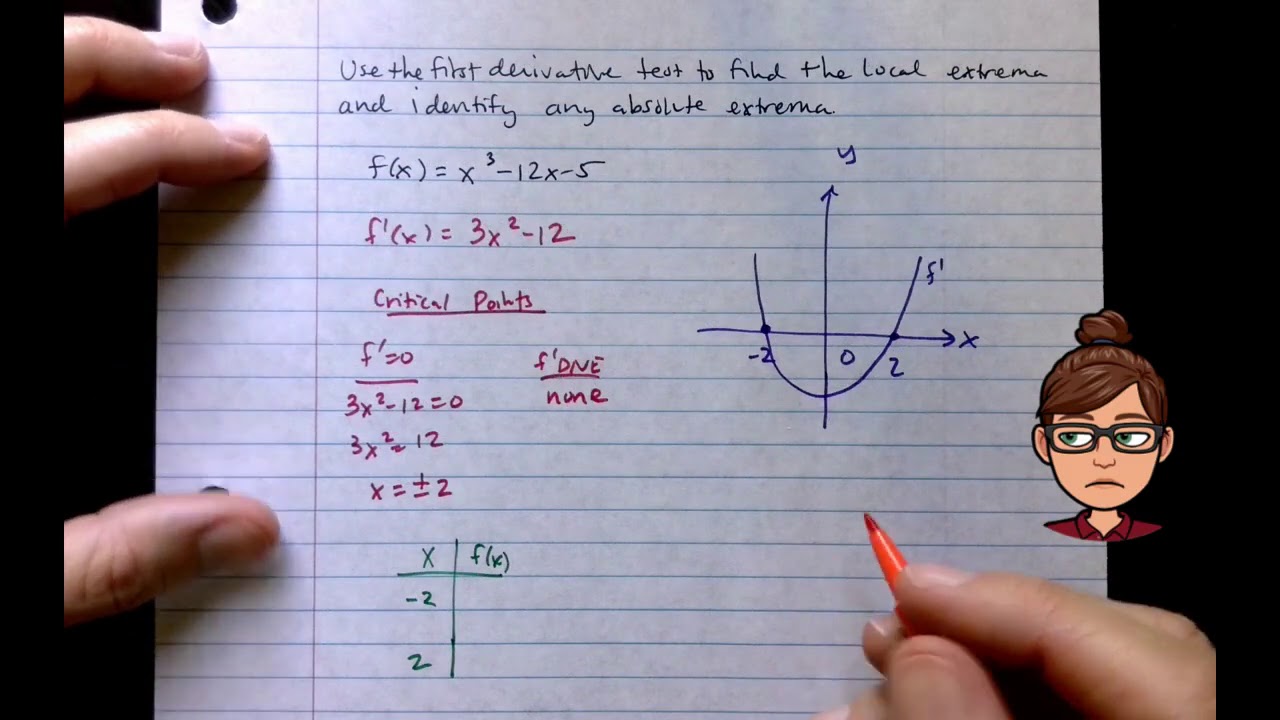 Use the first derivative test to find the local extrema
and identify any absolute extrema.
f(x) = x³-12x-5
f'(x) = 3x²-12
Critical Points
f'=0
3x²-12=0
3x²=12
x = ±2
f'DNE
none
x f(x)
-2
2
y
f'
x
-2
0
2